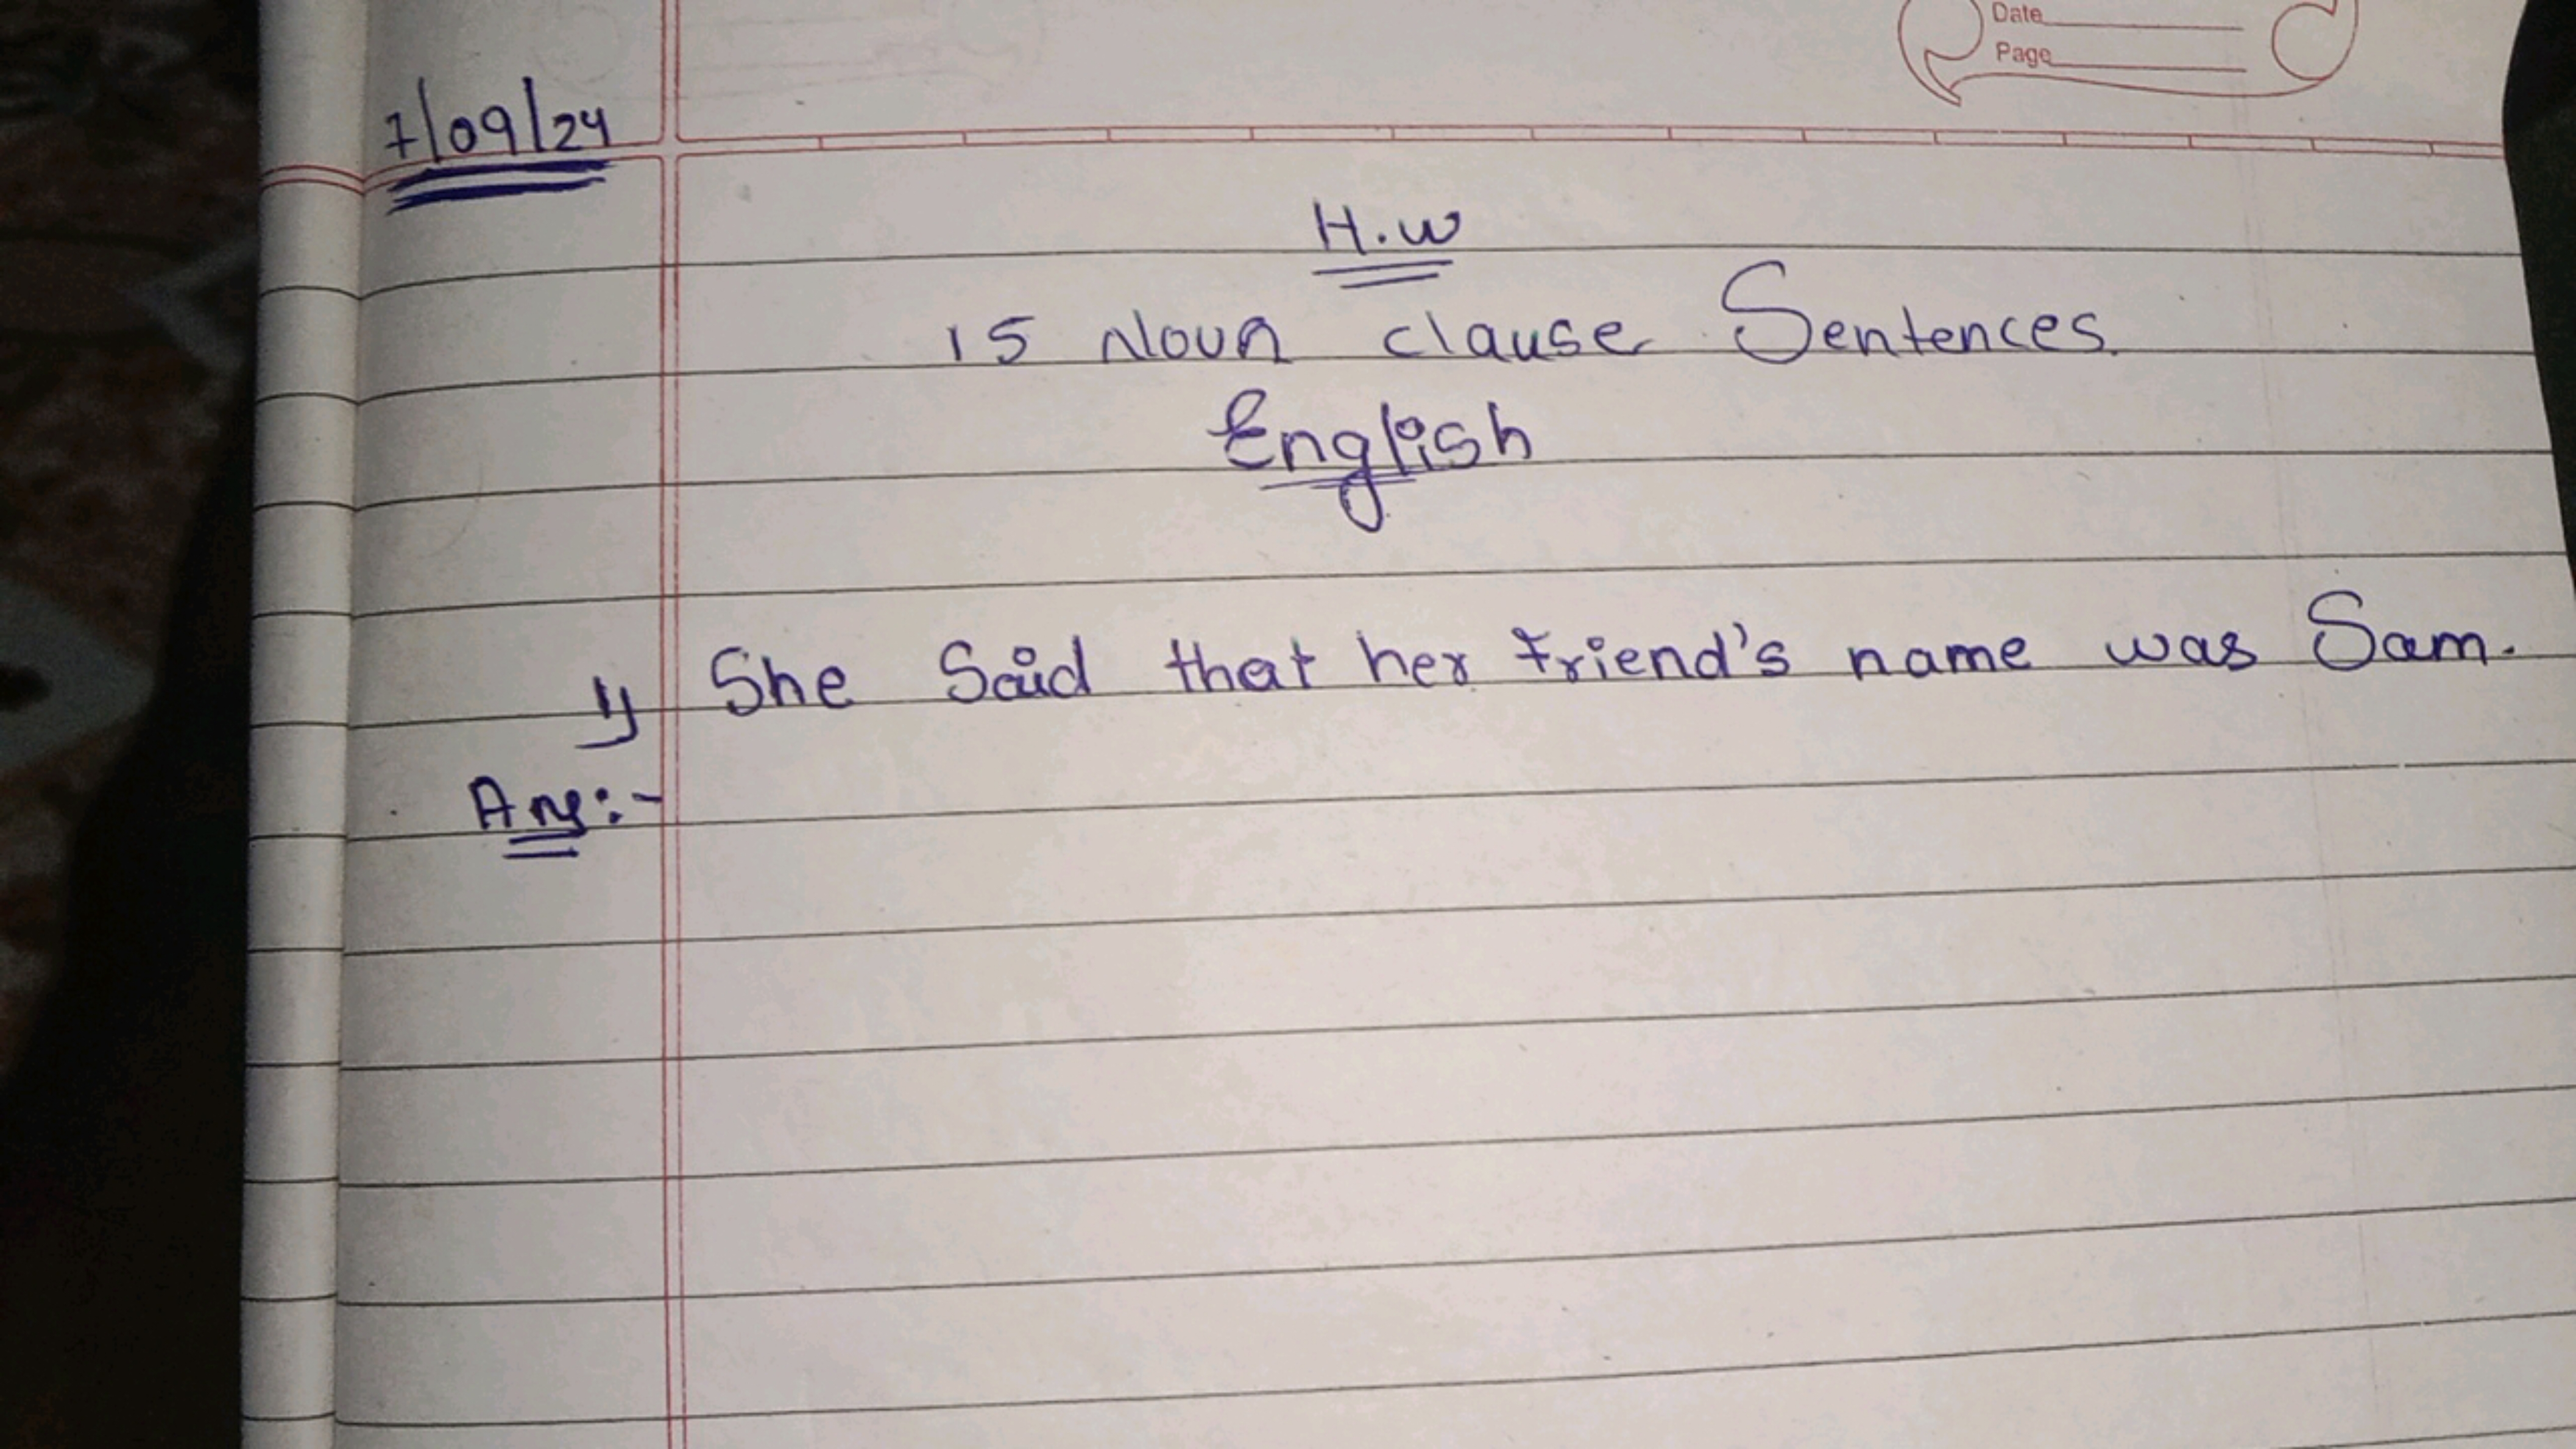 Date
Page
7/09/24
H.w
15 Noun clause Sentences.
English
1) She Said that her friend's name was Sam.
Ans:-